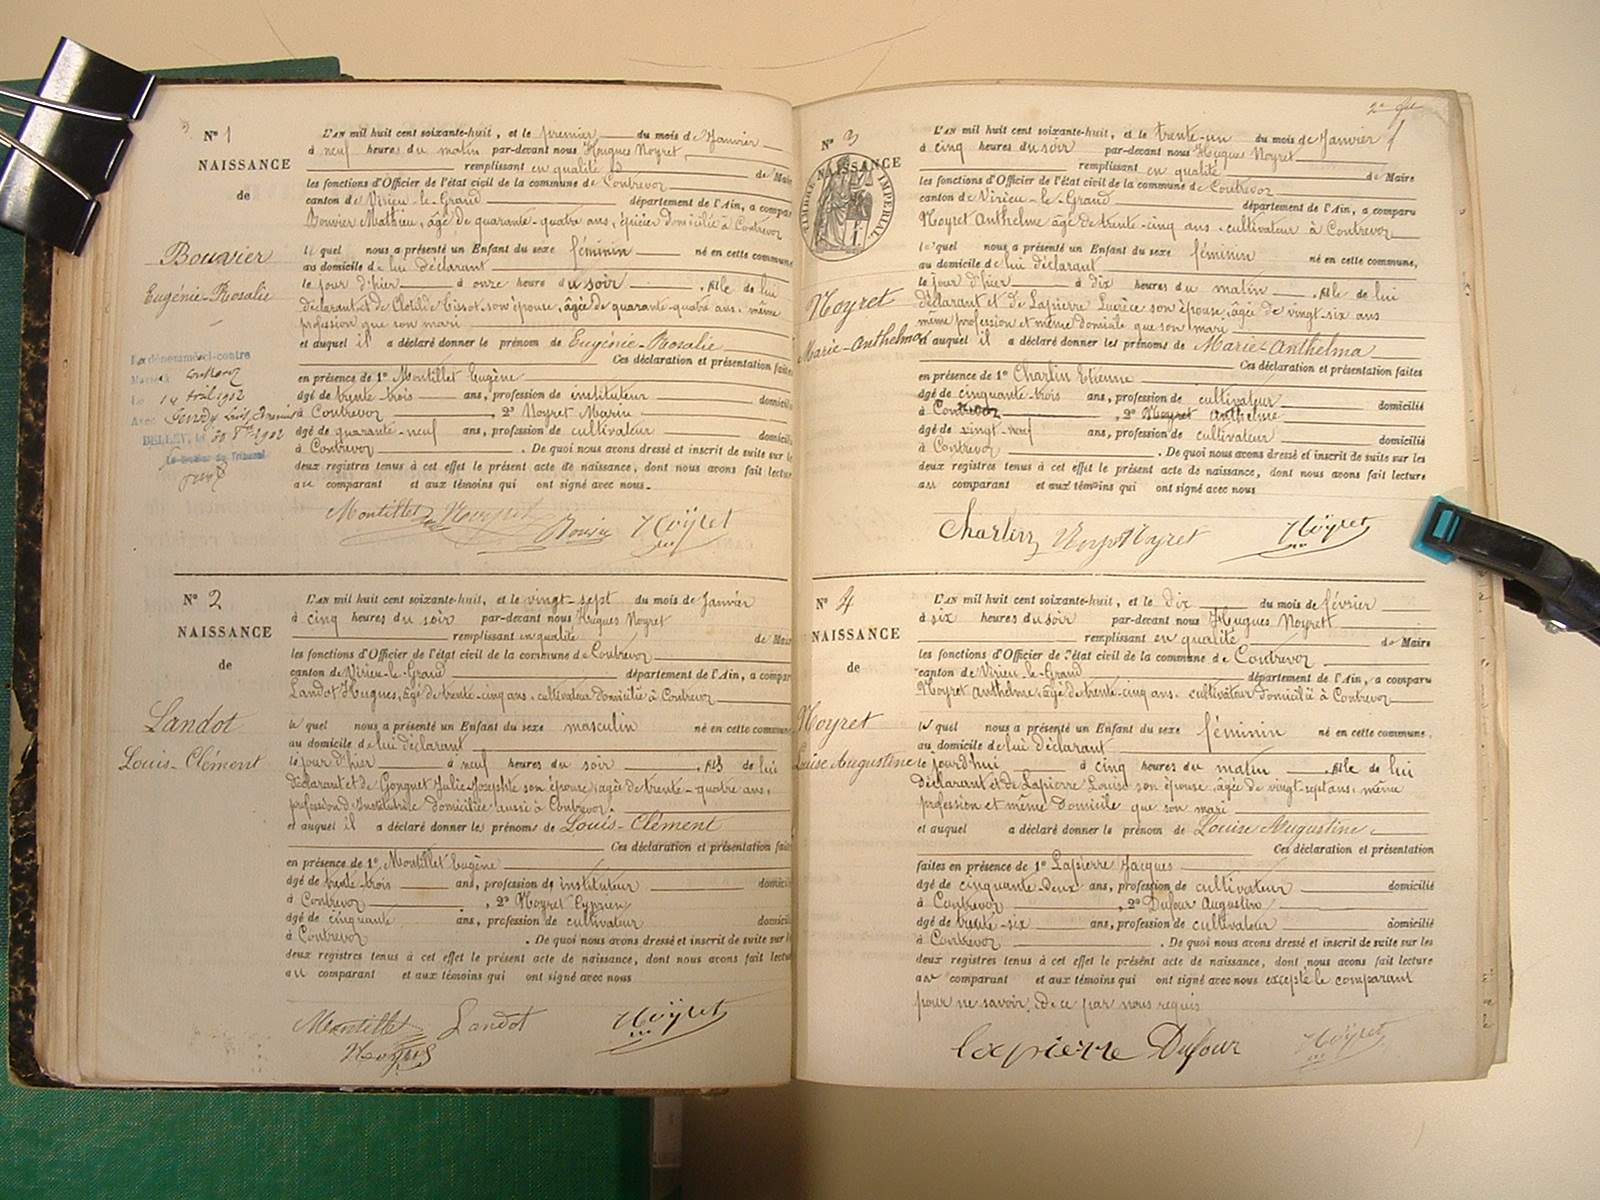 N° 1
NAISSANCE
de
Bouvier
Eugénie-Rosalie
L'AN mil huit cent soixante-huit, et le premier du mois de Janvier
à neuf heures du matin par-devant nous Hugues Noyret
remplissant en qualité de Maire
les fonctions d'Officier de l'état civil de la commune de Contrevoz
canton de Virieu-le-Grand département de l'Ain, a comparu
Bouvier Mathieu, âgé de quarante-quatre ans, épicier domicilié à Contrevoz
lequel nous a présenté un Enfant du sexe féminin né en cette commune
au domicile de lui déclarant
le jour d'hier à onze heures du soir, fille de lui
déclarant et de Clotilde Tissot son épouse, âgée de quarante-quatre ans, même
profession que son mari
et auquel il a déclaré donner le prénom de Eugénie-Rosalie
Ces déclaration et présentation faites
en présence de 1° Montillet Eugène
âgé de trente-trois ans, profession de instituteur domicilié
à Contrevoz, 2° Noyret Marin
âgé de quarante-neuf ans, profession de cultivateur domicilié
à Contrevoz. De quoi nous avons dressé et inscrit de suite sur les
deux registres tenus à cet effet le présent acte de naissance, dont nous avons fait lecture
au comparant et aux témoins qui ont signé avec nous.
La dénommée ci-contre
Mariée à Contrevoz
Le 14 Avril 1902
Avec
BELLEY, le 1902
Le Greffier du Tribunal
Montillet Noyret Bouvier Noÿret
N° 2
NAISSANCE
de
Landot
Louis-Clément
L'AN mil huit cent soixante-huit, et le vingt-sept du mois de Janvier
à cinq heures du soir par-devant nous Hugues Noyret
remplissant en qualité de Maire
les fonctions d'Officier de l'état civil de la commune de Contrevoz
canton de Virieu-le-Grand département de l'Ain, a comparu
Landot Hugues, âgé de trente-cinq ans, cultivateur domicilié à Contrevoz
lequel nous a présenté un Enfant du sexe masculin né en cette commune
au domicile de lui déclarant
le jour d'hier à neuf heures du soir, fils de lui
déclarant et de Gonguet Julie-Josephte son épouse, âgée de trente-quatre ans,
profession d'Institutrice domiciliée aussi à Contrevoz.
et auquel il a déclaré donner les prénoms de Louis-Clément
Ces déclaration et présentation faites
en présence de 1° Montillet Eugène
âgé de trente-trois ans, profession de instituteur domicilié
à Contrevoz, 2° Noyret Cyprien
âgé de cinquante ans, profession de cultivateur domicilié
à Contrevoz. De quoi nous avons dressé et inscrit de suite sur les
deux registres tenus à cet effet le présent acte de naissance, dont nous avons fait lecture
au comparant et aux témoins qui ont signé avec nous
Montillet Landot Noÿret
Noyret
N° 3
NAISSANCE
TIMBRE IMPÉRIAL
Noyret
Marie-Anthelma
L'AN mil huit cent soixante-huit, et le trente-un du mois de Janvier
à cinq heures du soir par-devant nous Hugues Noyret
remplissant en qualité de Maire
les fonctions d'Officier de l'état civil de la commune de Contrevoz
canton de Virieu-le-Grand département de l'Ain, a comparu
Noyret Anthelme âgé de trente-cinq ans cultivateur à Contrevoz
lequel nous a présenté un Enfant du sexe féminin né en cette commune,
au domicile de lui déclarant
le jour d'hier à dix heures du matin, fille de lui
déclarant et de Lapierre Lucrèce son épouse, âgée de vingt-six ans
même profession et même domicile que son mari
et auquel il a déclaré donner les prénoms de Marie-Anthelma
Ces déclaration et présentation faites
en présence de 1° Charlin Etienne
âgé de cinquante-trois ans, profession de cultivateur domicilié
à Contrevoz, 2° Noyret Anthelme
âgé de vingt-neuf ans, profession de cultivateur domicilié
à Contrevoz. De quoi nous avons dressé et inscrit de suite sur les
deux registres tenus à cet effet le présent acte de naissance, dont nous avons fait lecture
au comparant et aux témoins qui ont signé avec nous
Charlin Noyret Noÿret
N° 4
NAISSANCE
de
Noyret
Louise Augustine
L'AN mil huit cent soixante-huit, et le dix du mois de février
à six heures du soir par-devant nous Hugues Noyret
remplissant en qualité de Maire
les fonctions d'Officier de l'état civil de la commune de Contrevoz
canton de Virieu-le-Grand département de l'Ain, a comparu
Noyret Anthelme, âgé de trente-cinq ans, cultivateur domicilié à Contrevoz
lequel nous a présenté un Enfant du sexe féminin né en cette commune,
au domicile de lui déclarant
le jourd'hui à cinq heures du matin, fille de lui
déclarant et de Lapierre Louise son épouse, âgée de vingt-sept ans, même
profession et même domicile que son mari
et auquel a déclaré donner le prénom de Louise Augustine
Ces déclaration et présentation
faites en présence de 1° Lapierre Jacques
âgé de cinquante-deux ans, profession de cultivateur domicilié
à Contrevoz, 2° Dufour Augustin
âgé de trente-six ans, profession de cultivateur domicilié
à Contrevoz. De quoi nous avons dressé et inscrit de suite sur les
deux registres tenus à cet effet le présent acte de naissance, dont nous avons fait lecture
au comparant et aux témoins qui ont signé avec nous excepté le comparant
pour ne savoir, de ce par nous requis
lapierre Dufour Noÿret